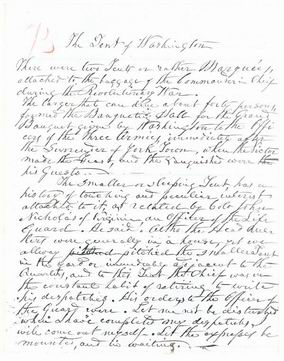 The Tent of Washington
There were two Tents or rather Marquees,
attached to the baggage of the Commander in Chief
during the Revolutionary War.
The larger that can dine about forty persons
formed the Banquetg Hall for the Grand
Banquet given by Washington to the Offi
cers of the three Armies immediately after
the Surrender of York Town, when the victor
made the Feast, and the Vanquished were
his Guests
The smaller or sleeping Tent has a
history of touching and peculiar interest
attached to it, as related by Colo John
Nicholas of Virginia an Officer of the Life
Guard. He said, altho the Head Quar
ters were generally in a house, yet we
always pitched the small tent
in the yard or immediately adjacent to the
Quarters, and to this Tent the Chief was in
the constant habit of retiring to write
his despatches. His orders to the Officer of
the guard were. Let me not be disturbed
when I have completed my despatches, I
will come out myself. Let the expresses be
mounted and in waiting.